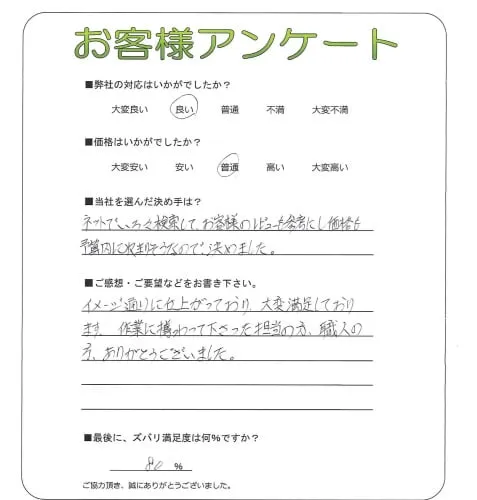 お客様アンケート
■弊社の対応はいかがでしたか？
大変良い 良い 普通 不満 大変不満
■価格はいかがでしたか？
大変安い 安い 普通 高い 大変高い
■当社を選んだ決め手は？
ネットでいろいろ検索して、お客様のレビューも参考にし価格も
予算内に収まりそうなので決めました。
■ご感想・ご要望などをお書き下さい。
イメージ通りに仕上がっており、大変満足しており
ます。作業に携わって下さった担当の方、職人の
方、ありがとうございました。
■最後に、ズバリ満足度は何%ですか？
80 %
ご協力頂き、誠にありがとうございました。